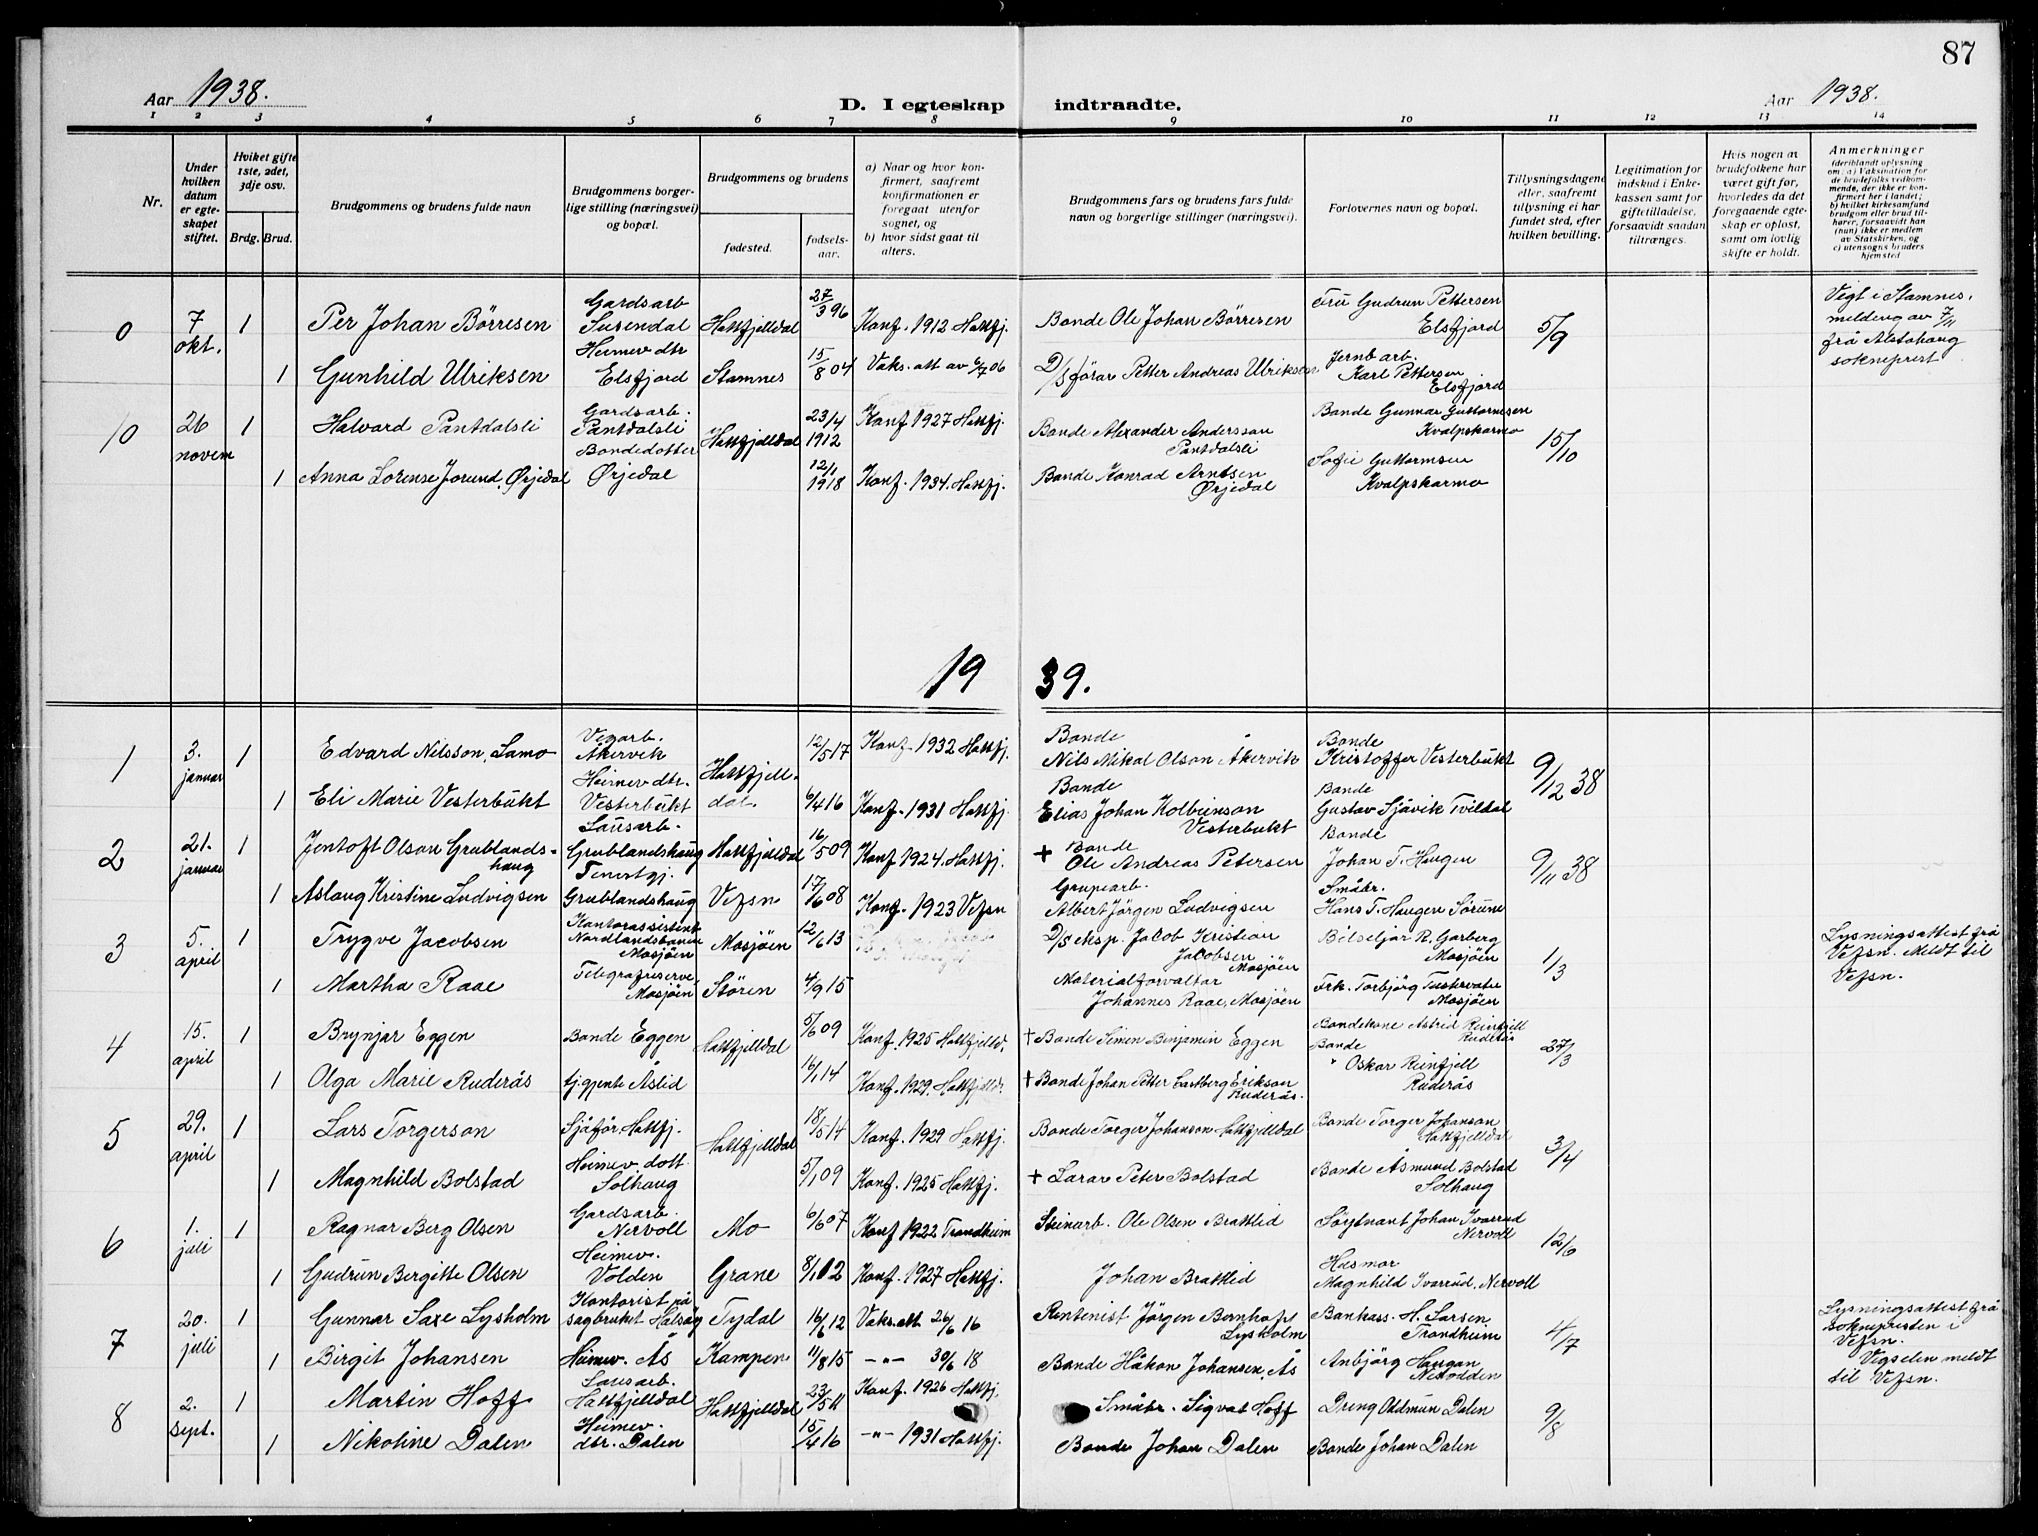 87
Aar 1938.
D. I egteskap indtraadte.
Aar 1938.
1 2 3 4 5 6 7 8 9 10 11 12 13 14
Nr.
Under hvilken datum er egteskapet stiftet.
Hviket gifte 1ste, 2det, 3dje osv.
Brdg. Brud.
Brudgommens og brudens fulde navn
Brudgommens borgerlige stilling (næringsvei) og bopæl.
Brudgommens og brudens
fødested.
fødselsaar.
a) Naar og hvor konfirmert, saafremt konfirmationen er foregaat utenfor sognet, og
b) hvor sidst gaat til alters.
Brudgommens fars og brudens fars fulde navn og borgerlige stillinger (næringsvei).
Forlovernes navn og bopæl.
Tillysningsdagene eller, saafremt tillysning ei har fundet sted, efter hvilken bevilling.
Legitimation for indskud i Enkekassen samt for giftetilladelse, forsaavidt saadan tiltrænges.
Hvis nogen av brudefolkene har været gift før, hvorledes da det foregaaende egteskap er opløst, samt om lovlig skifte er holdt.
Anmerkninger (deriblandt oplysning om: a) Vaksination for de brudefolks vedkommende, der ikke er konfirmert her i landet; b) hvilket kirkesamfund brudgom eller brud tilhører, forsaavidt han (hun) ikke er medlem av Statskirken, og c) utensogns bruders hjemsted
0 7 okt. 1 Per Johan Börresen Gardsarb Susendal Hattfjelldal 27/3 96 Konf. 1912 Hattfj. Bonde Ole Johan Börresen Fru Gudrun Pettersen Elsfjord 5/9 Vigt i Stamnes, melding av 7/11 frå Alstahaug sokneprest
1 Gunhild Ulriksen Heimev dtr Elsfjord Stamnes 15/8 04 Vaks. att av 6/7 06 D/s förar Petter Andreas Ulriksen Jernb arb. Karl Pettersen Elsfjord
10 26 novem 1 Halvard Pantdalsli Gardsarb. Pantdalsli Hattfjelldal 23/4 1912 Konf 1927 Hattfj. Bonde Alexander Andersson Pantdalsli Bonde Gunnar Guttormsen Kvalpskarmo 15/10
1 Anna Lorense Jorund, Ørjedal Bondedotter Ørjedal 12/1 1918 Konf. 1934. Hattfj. Bonde Konrad Arntsen Ørjedal Sofie Guttormsen Kvalpskarmo
19 39.
1 3. januar 1 Edvard Nilsson, Lamo Vegarb. Åkervik Hattfjelldal. 12/5 17 Konf. 1932 Hattfj. Bonde Nils Mikal Olson Åkervik Bonde Kristoffer Vesterbukt 9/12 38
1 Eli Marie Vesterbukt Heimev dtr. Vesterbukt 6/4 16 Konf. 1931 Hattfj. Bonde Elias Johan Kolbeinson Vesterbukt Bonde Gustav Sjåvik Tvildal
2 21. januar 1 Jentoft Olson Grublandshaug Lausarb. Grublandshaug Hattfjelldal 16/5 09 Konf 1924. Hattfj. + Bonde Ole Andreas Petersen Bonde Johan T. Haugen 9/11 38
1 Aslaug Kristine Ludvigsen Tenestgj. Grublandshaug Vefsn 17/6 08 Konf. 1923 Vefsn Gruvearb. Albert Jörgen Ludvigsen Småbr. Hans T. Haugen Sörum
3 5. april 1 Trygve Jacobsen Kontorassistent Nordlandsbanen Mosjöen Mosjöen 12/6 13 D/s eksp. Jacob Kristian Jacobsen Mosjöen Bilseljar R. Garberg Mosjöen 1/3 Lysningsattest frå Vefsn. Meldt til Vefsn.
1 Martha Raae Telegrafreserve, Mosjöen Stören 4/9 15 Materialforvaltar Johannes Raae, Mosjöen Frk. Torbjörg Tustervatn Mosjöen
4 15. april 1 Brynjar Eggen Bonde Eggen Hattfjelldal 5/6 09 Konf. 1925 Hattfjelld. + Bonde Simen Benjamin Eggen Bondekone Astrid Reinfjell Ruderås 27/3
1 Olga Marie Ruderås tjgjente Åslid 16/1 14 Konf. 1929. Hattfjelld. + Bonde Johan Petter Erikson Ruderås. Bonde Oskar Reinfjell Ruderås
5 29. april 1 Lars Torgerson Sjåför, Hattfj. Hattfjelldal 18/5 14 Konf. 1929 Hattfj. Bonde Torger Johanson Hattfjelldal Bonde Torger Johanson Hattfjelldal 3/4
1 Magnhild Bolstad Heimev. dott. Solhaug 5/1 09 Konf. 1925 Hattfj. + Lærar Peter Bolstad Bonde Åsmund Bolstad Solhaug
6 1. juli 1 Ragnar Berg Olsen Gardsarb. Nervoll Mo 6/6 07 Konf 1922 Trondheim Steinarb. Ole Olsen Brattlid Löytnant Johan Ivarrud Nervoll 12/6
1 Gudrun Bergitte Olsen Heimev. Volden Grane 8/1 12 Konf. 1927 Hattfj. Johan Brattlid Husmor Magnhild Ivarrud, Nervoll
7 20. juli 1 Gunnar Saxe Lysholm Kontorist på sagbruket Halsöy Tydal 16/6 12 Vaks. att 26/6 16 Rentenist Jörgen Lysholm Bankass. H. Larsen, Trondheim 4/7 Lysningsattest frå soknepresten i Vefsn. Vigselen meldt til Vefsn.
1 Birgit Johansen Heimev. Ås Kampen 11/8 15 –"– 30/6 18 Bonde Håkon Johansen, Ås Anbjörg Haugan Notodden
8 2. sept. 1 Martin Hoff Lausarb. Hattfjelldal Hattfjelldal 23/5 11 Konf. 1926 Hattfj. Småbr. Sigvat Hoff Dreng Oldmun Dalen 9/8
1 Nikoline Dalen Heimev. dtr. Dalen 15/4 16 –"– 1931 Hattfj. Bonde Johan Dalen Bonde Johan Dalen